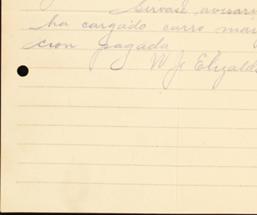 Sirvase avisar
ha cargado carro mar
cion pagada
W Je Elizald